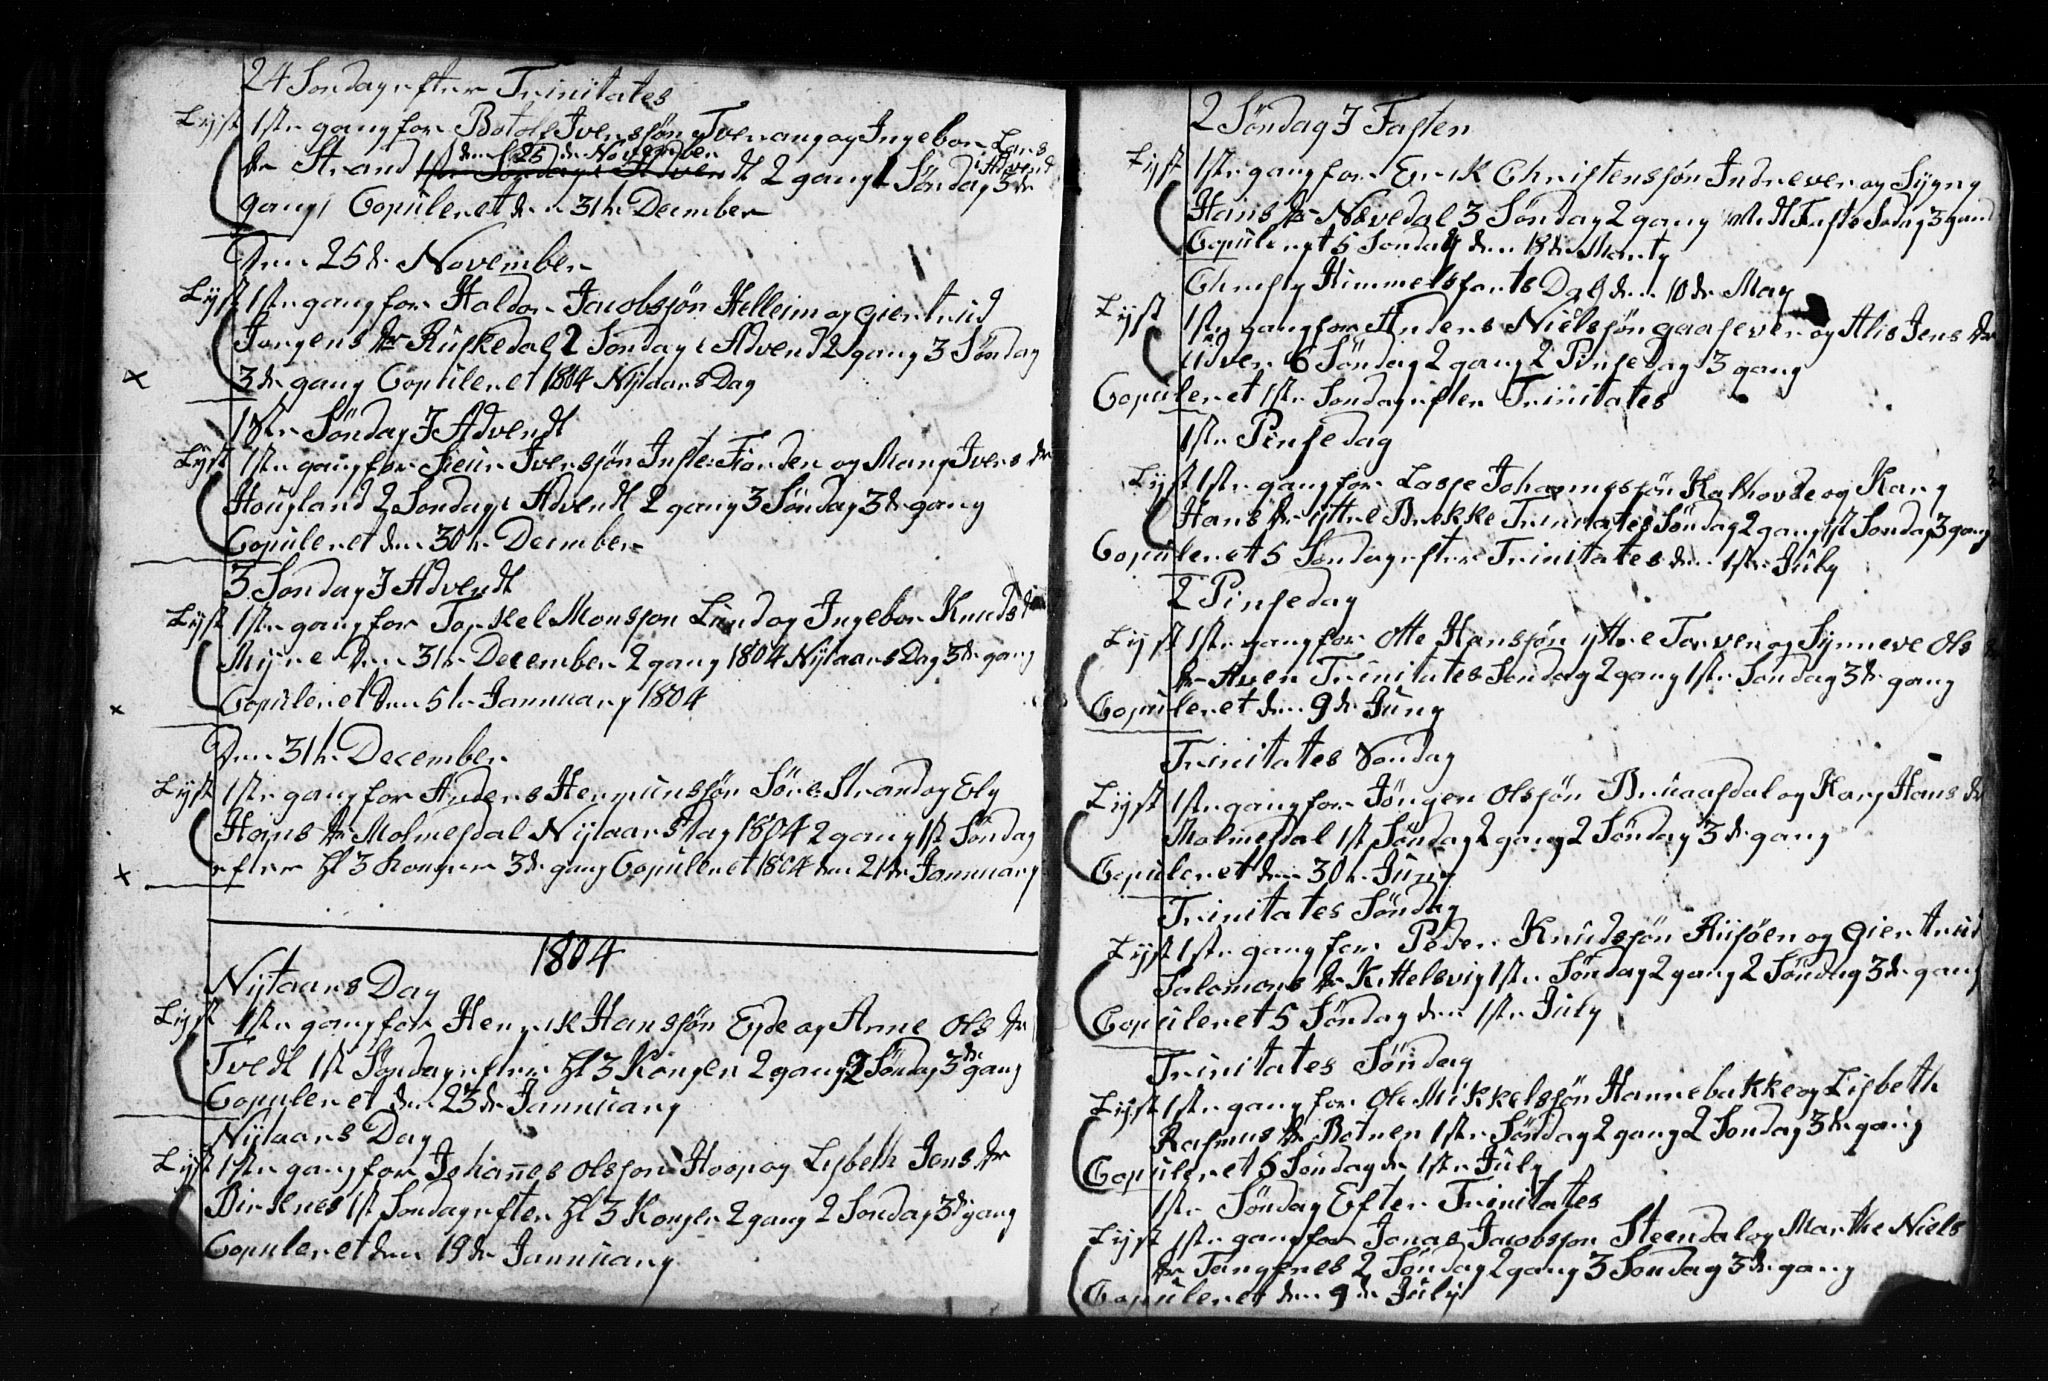 24 Søndag efter Trinitates
Lyst 1ste gang for Botolf Iverssøn Tverang og Ingebor Lars
dr Strand 1ste Søndag i Advendt 2 gang 1 Søndag i Advend 3de
den 25de November
gang Copuleret den 31te December
Den 25de November
Lyst 1ste gang for Haldor Jacobssøn Helleim og Giertrud
Jørgens dr Ruskedal 2 Søndag i Advend 2 gang 3 Søndag
3de gang Copuleret 1804 Nytaars Dag
1ste Søndag J Advendt
Lyst 1ste gang for Siur Iverssøn Inste Fiorden og Mary Ivers dr
Hougland 2 Søndag i Advendt 2 gang 3 Søndag 3de gang
Copuleret den 30te December
3 Søndag J Advendt
Lyst 1ste gang for Torkel Monssøn Lund og Ingebor Knuds dr
Myre Den 31te December 2 gang 1804 Nytaars Dag 3de gang
Copuleret den 5te Jannuary 1804
Den 31te December
Lyst 1ste gang for Anders Hermunssøn Søre Strand og Ely
Hans dr Molmesdal Nytaars dag 1804 2 gang 1st Søndag
efter Hl 3 Konger 3de gang Copuleret 1804 den 21de Jannuary
1804
Nytaars Dag
Lyst 1ste gang for Henrik Hanssøn Eyde og Anne Ols dr
Tvedt 1st Søndag efter Hl 3 Konger 2 gang 2 Søndag 3de gang
Copuleret den 23de Jannuary
Nytaars Dag
Lyst 1ste gang for Johannes Olssøn Hoop og Lisbeth Jens dr
Birknes 1st Søndag efter Hl 3 Konger 2 gang 2 Søndag 3de gang
Copuleret den 19de Jannuary
2 Søndag J Fasten
Lyst 1ste gang for Erik Christenssøn Indrever og Sygny
Hans dr Nævedal 3 Søndag 2 gang Midt Faste Sødag 3 gand
Copuleret 5 Søndag den 18de Marty
Christy Himmelsfarts Dag den 10de May
Lyst 1ste gang for Anders Nielssøn gaasever og Alis Jens dr
udver 6 Søndag 2 gang 2 Pinsedag 3 gang
Copuleret 1ste Søndag efter Trinitates
1ste Pinsedag
Lyst 1ste gang for Lasse Johannessøn Kalhovde og Kary
Hans dr yttre Brekke Trinitates Søndag 2 gang 1st Søndag 3 gang
Copuleret 5 Søndag efter Trinitates den 1ste July
2 Pinsedag
Lyst 1ste gang for Otte Hanssøn yttre Torver og Synneve Ols
dr Aven Trinitates Søndag 2 gang 1ste Søndag 3de gang
Copuleret den 9de Juny
Trinitates Søndag
Lyst 1ste gang for Jørgen Olssøn Bruaasdal og Kary Hans dr
Molmesdal 1st Søndag 2 gang 2 Søndag 3de gang
Copuleret den 30te Juny
Trinitates Søndag
Lyst 1ste gang for Peder Knudssøn Riisøen og Giertrud
Salomons dr Kittelsvig 1ste Søndag 2 gang 2 Søndag 3de gang
Copuleret 5 Søndag den 1ste July
Trinitates Søndag
Lyst 1ste gang for Ole Mikkelssøn Hannebakke og Lisbeth
Rasmus dr Botnen 1ste Søndag 2 gang 2 Søndag 3de gang
Copuleret 5 Søndag den 1ste July
1ste Søndag Efter Trinitates
Lyst 1ste gang for Jonas Jacobssøn Steendal og Marthe Niels
dr Tangenes 2 Søndag 2 gang 3 Søndag 3de gang
Copuleret den 9de July